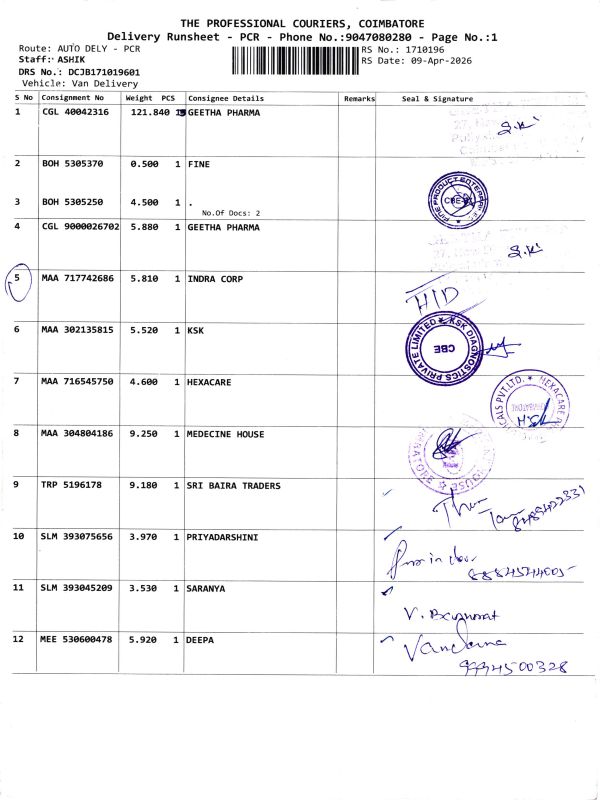 THE PROFESSIONAL COURIERS, COIMBATORE
Delivery Runsheet - PCR - Phone No.:9047080280 - Page No.:1
Route: AUTO DELY - PCR
RS No.: 1710196
Staff: ASHIK
RS Date: 09-Apr-2026
DRS No.: DCJB171019601
Vehicle: Van Delivery
S No Consignment No Weight PCS Consignee Details Remarks Seal & Signature
1 CGL 40042316 121.840 GEETHA PHARMA S.K
2 BOH 5305370 0.500 1 FINE
3 BOH 5305250 4.500 1 .
No.Of Docs: 2
FINE PRODUCT ENTERPRISES CBE
4 CGL 9000026702 5.880 1 GEETHA PHARMA S.K
5 MAA 717742686 5.810 1 INDRA CORP
HID
6 MAA 302135815 5.520 1 KSK
KSK DIAGNOSTICS PRIVATE LIMITED
CBE
7 MAA 716545750 4.600 1 HEXACARE
HEXACARE PVT.LTD.
8 MAA 304804186 9.250 1 MEDECINE HOUSE
HOUSE
9 TRP 5196178 9.180 1 SRI BAIRA TRADERS
10 SLM 393075656 3.970 1 PRIYADARSHINI
11 SLM 393045209 3.530 1 SARANYA
12 MEE 530600478 5.920 1 DEEPA
9994500328